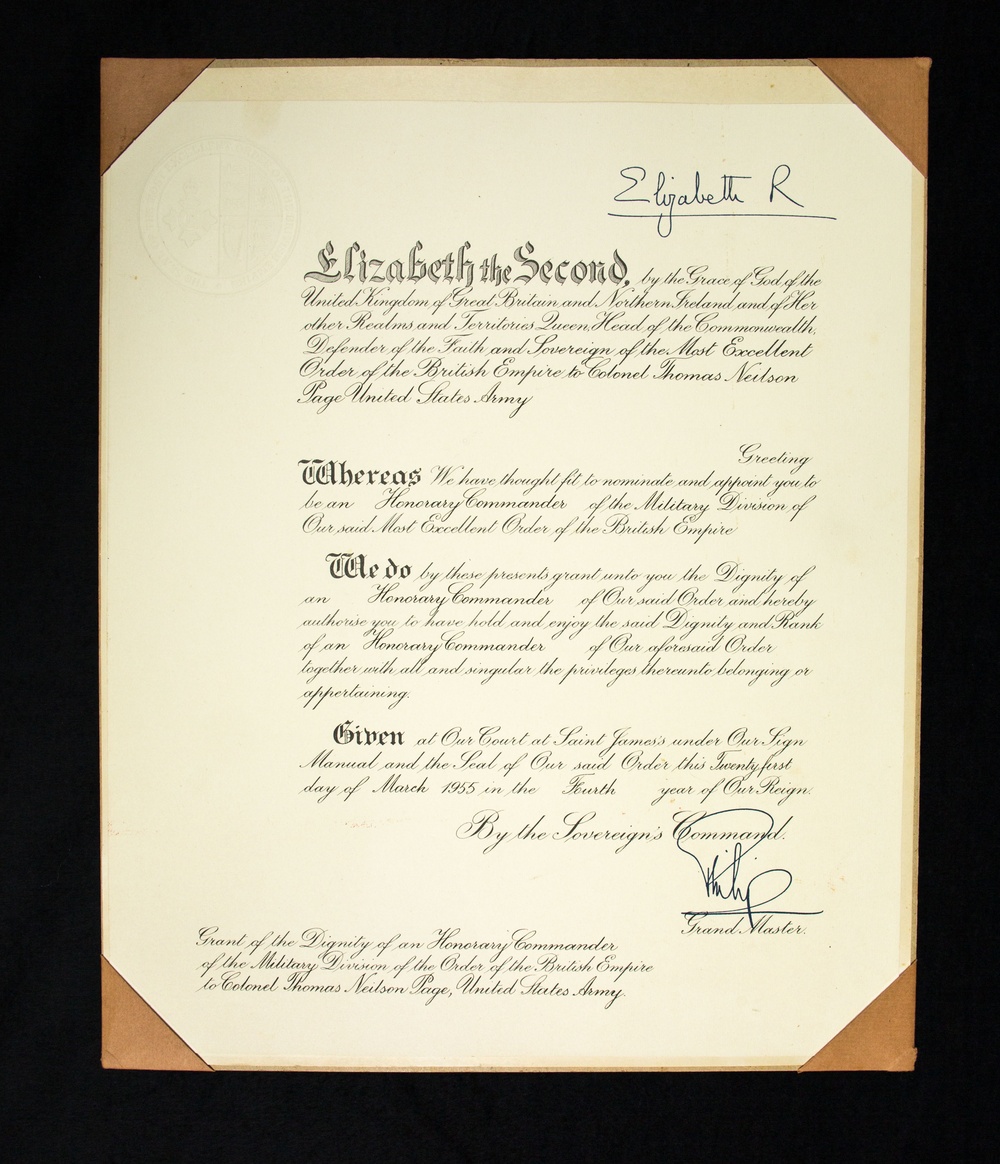 Elizabeth R
Elizabeth the Second, by the Grace of God of the
United Kingdom of Great Britain and Northern Ireland and of Her
other Realms and Territories Queen, Head of the Commonwealth,
Defender of the Faith and Sovereign of the Most Excellent
Order of the British Empire to Colonel Thomas Neilson
Page United States Army
Greeting
Whereas We have thought fit to nominate and appoint you to
be an Honorary Commander of the Military Division of
Our said Most Excellent Order of the British Empire
We do by these presents grant unto you the Dignity of
an Honorary Commander of Our said Order and hereby
authorise you to have hold and enjoy the said Dignity and Rank
of an Honorary Commander of Our aforesaid Order
together with all and singular the privileges thereunto belonging or
appertaining.
Given at Our Court at Saint James's under Our Sign
Manual and the Seal of Our said Order this Twenty first
day of March 1955 in the Fourth year of Our Reign.
By the Sovereign's Command.
Philip
Grand Master.
Grant of the Dignity of an Honorary Commander
of the Military Division of the Order of the British Empire
to Colonel Thomas Neilson Page, United States Army.